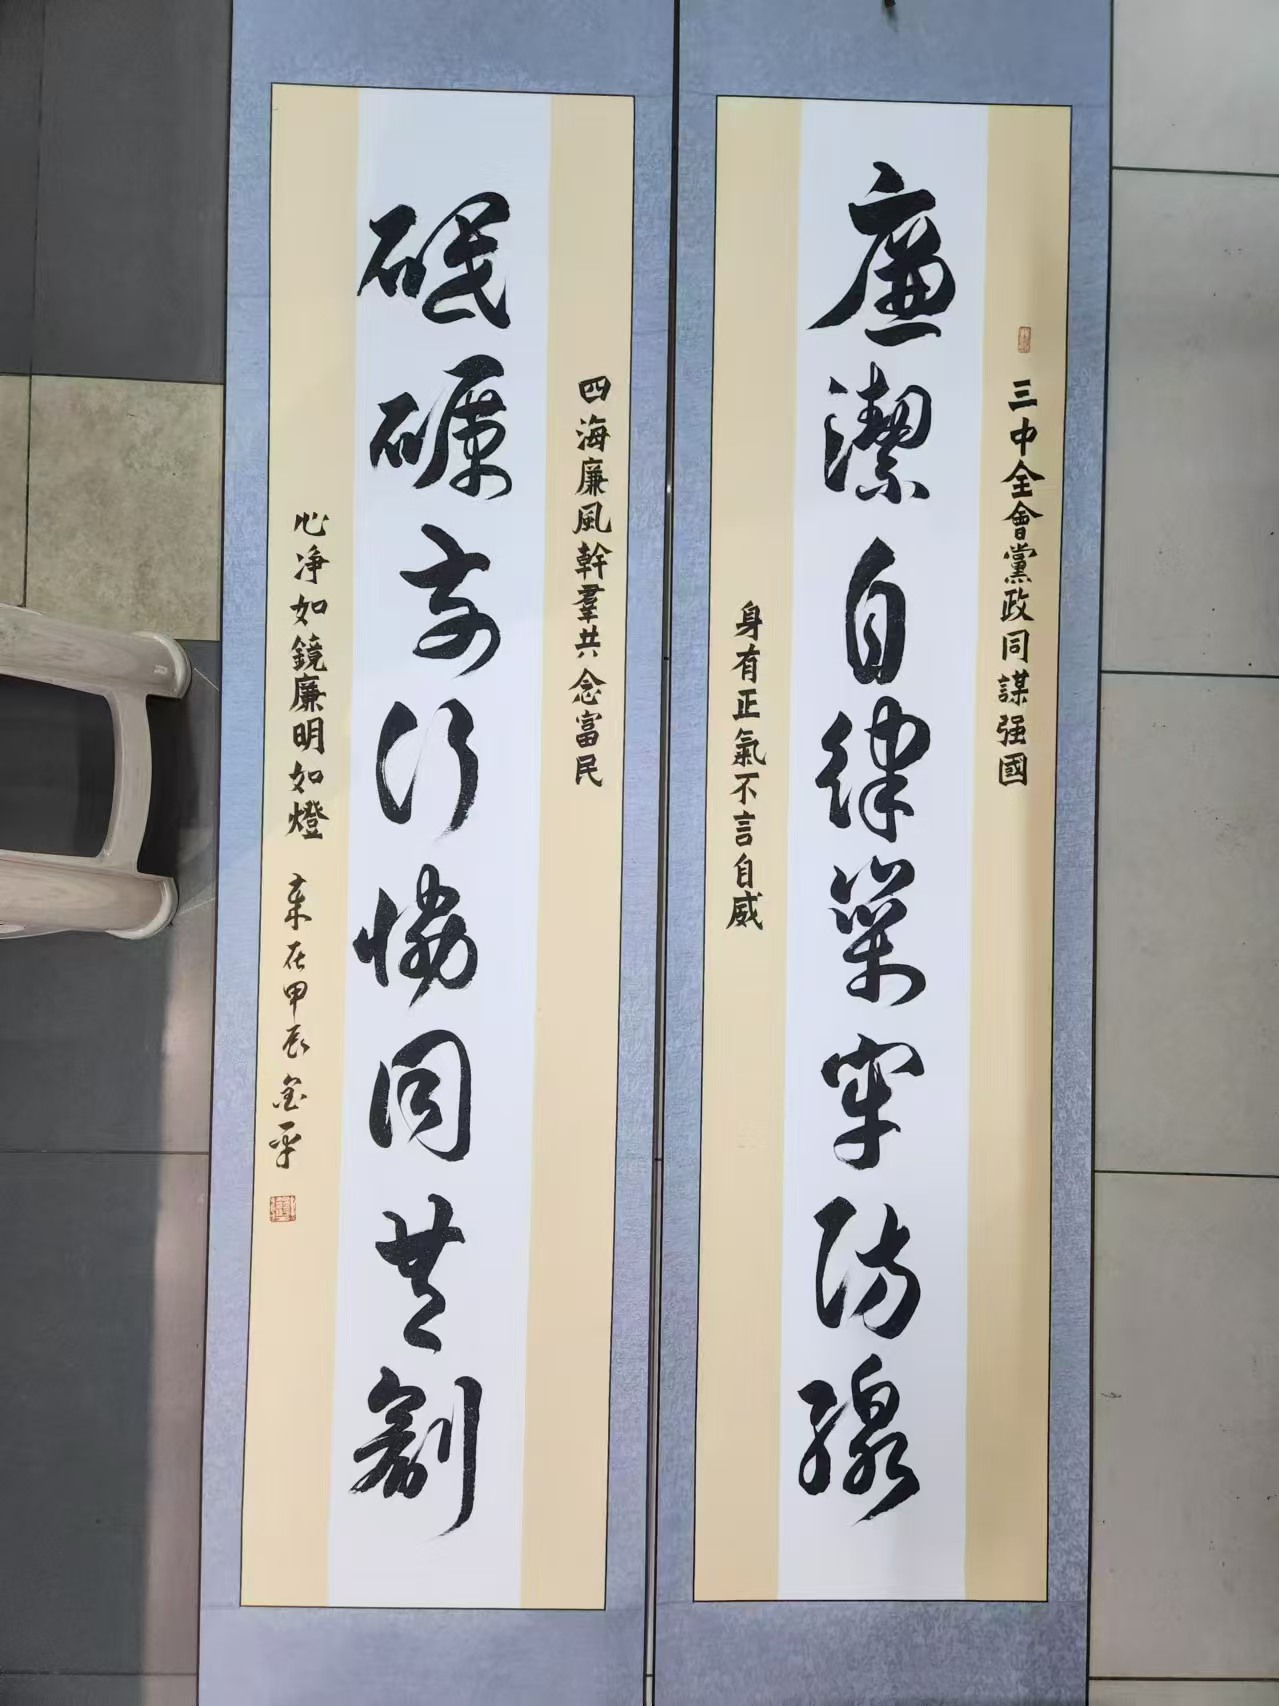 三中全會黨政同謀强國
廉潔自律築牢防線
身有正氣不言自威
四海廉風幹羣共念富民
砥礪前行協同共創
心净如鏡廉明如燈
在甲辰